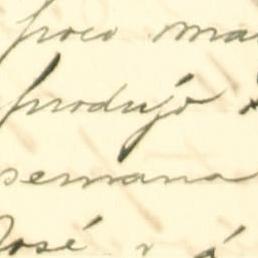 poco ma
produjo
semana
José